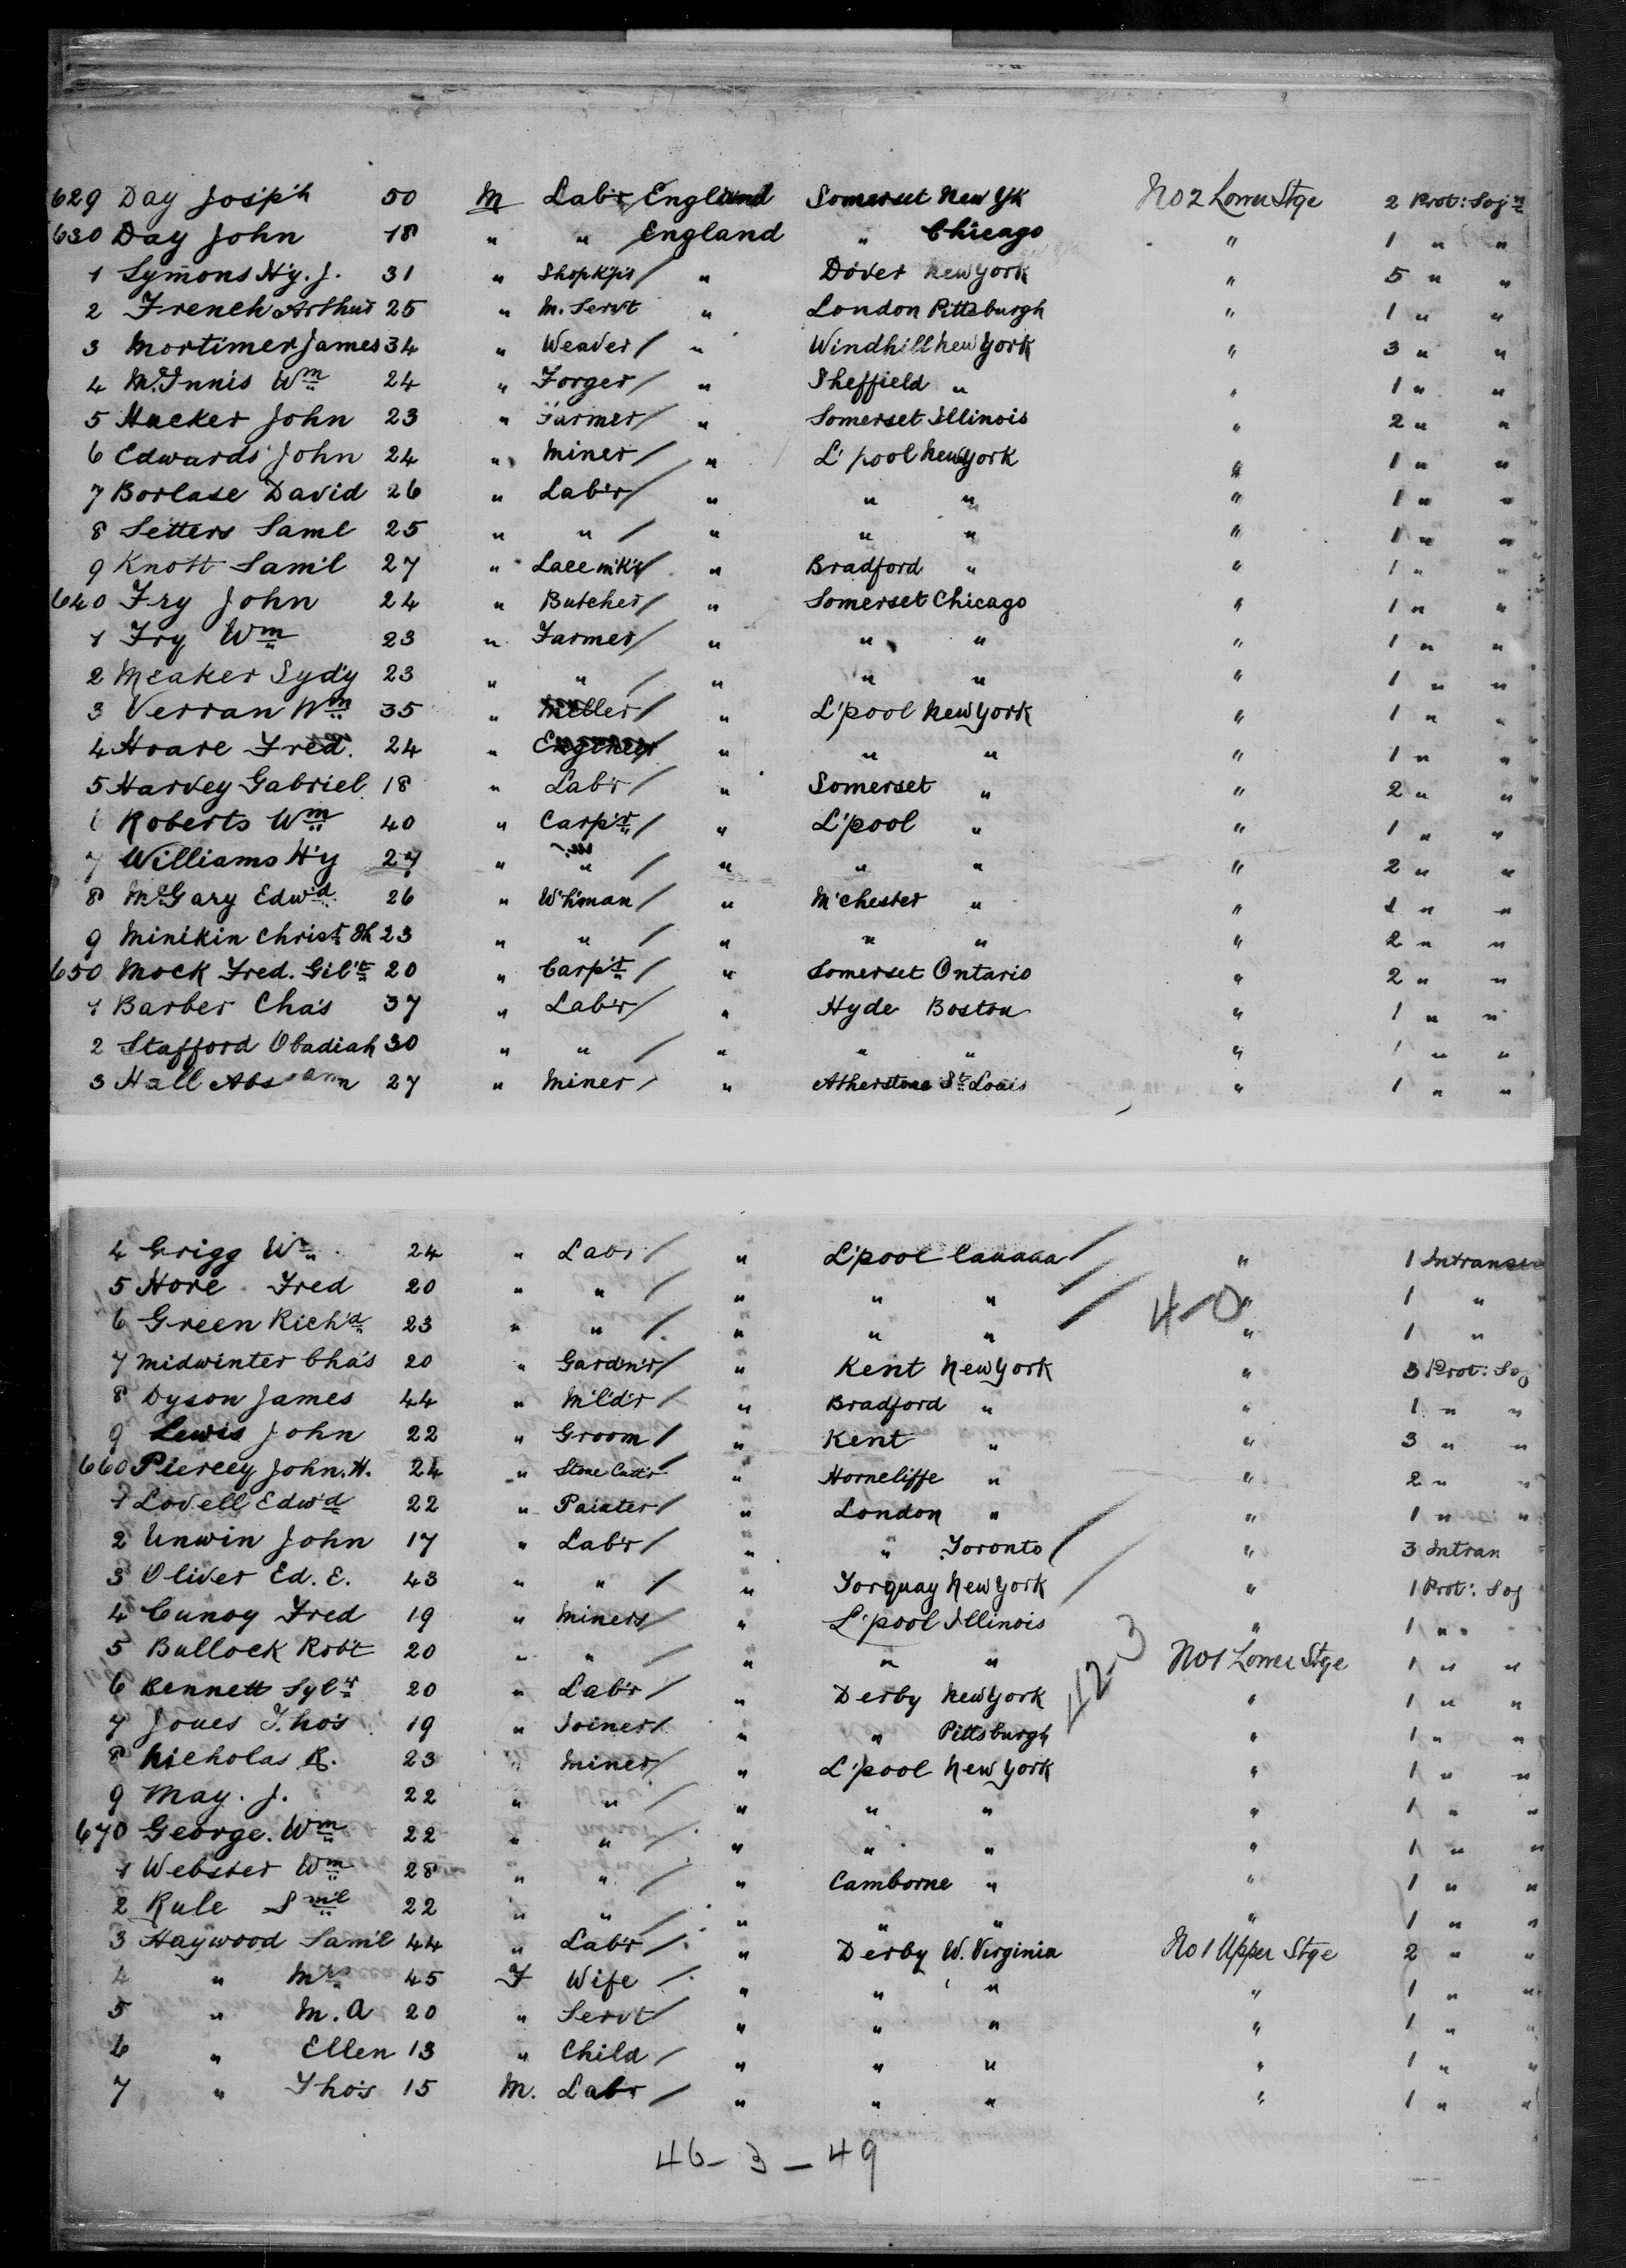 629 Day Josph 50 M Lab'r England Somerset New Yk No 2 Lower Stge 2 Prot: Soj'n
630 Day John 18 " " England " Chicago " 1 " "
1 Symons H'y. J. 31 " Shopk'pr / " Dover New York " 5 " "
2 French Arthur 25 " M. Serv't " London Pittsburgh " 1 " "
3 Mortimer James 34 " Weaver / " Windhill New York " 3 " "
4 McInnis Wm 24 " Forger / " Sheffield " " 1 " "
5 Hucker John 23 " Farmer / " Somerset Illinois " 2 " "
6 Edwards John 24 " Miner / " L'pool New York " 1 " "
7 Borlase David 26 " Lab'r / " " " " 1 " "
8 Setters Saml 25 " " / " " " " 1 " "
9 Knott Sam'l 27 " Lace mk'r / " Bradford " " 1 " "
640 Fry John 24 " Butcher / " Somerset Chicago " 1 " "
1 Fry Wm 23 " Farmer / " " " " 1 " "
2 Meaker Syd'y 23 " " / " " " " 1 " "
3 Verran Wm 35 " / " L'pool New York " 1 " "
4 Hoare Fred. 24 " " " " " 1 " "
5 Harvey Gabriel 18 " Lab'r / " Somerset " " 2 " "
6 Roberts Wm 40 " Carp'r / " L'pool " " 1 " "
7 Williams H'y 27 " " / " " " " 2 " "
8 McGary Edw'd 26 " W'h'man / " M'chester " " 1 " "
9 Minikin Christ'r 23 " " / " " " " 2 " "
650 Mock Fred. Gil't 20 " Carp'r / " Somerset Ontario " 2 " "
1 Barber Cha's 37 " Lab'r / " Hyde Boston " 1 " "
2 Stafford Obadiah 30 " " / " " " " 1 " "
3 Hall 27 " Miner / " Atherstone St. Louis " 1 " "
4 Grigg Wm 24 " Labr / " L'pool Canada / " 1 Intransit
5 Hore Fred 20 " " / " " " / " 1 "
6 Green Rich'd 23 " " / " " " " 1 "
4-0
7 Midwinter Cha's 20 " Gardn'r / " Kent New York " 3 Prot: Soj
8 Dyson James 44 " M'ld'r / " Bradford " " 1 " "
9 Lewis John 22 " Groom / " Kent " " 3 " "
660 Piercey John. H. 24 " Stone Cutt'r " Horncliffe " " 2 " "
1 Lovell Edw'd 22 " Painter / " London " " 1 " "
2 Unwin John 17 " Lab'r / " " Toronto / " 3 Intran
3 Oliver Ed. E. 43 " " / " Torquay New York / " 1 Prot: Soj
4 Cunoy Fred 19 " Miners / " L'pool Illinois " 1 "
5 Bullock Rob't 20 " " / " " " No 1 Lower Stge 1 " "
42-3
6 Bennett Sylr 20 " Lab'r / " Derby New York " 1 " "
7 Jones Tho's 19 " Joiner / " " Pittsburgh " 1 " "
8 Nicholas R. 23 " Miner / " L'pool New York " 1 " "
9 May. J. 22 " " / " " " " 1 " "
670 George. Wm 22 " " / " " " " 1 " "
1 Webster Wm 28 " " / " Camborne " " 1 " "
2 Rule Sml 22 " " / " " " " 1 " "
3 Haywood Sam'l 44 " Lab'r / " Derby W. Virginia No 1 Upper Stge 2 " "
4 " Mrs 45 F Wife / " " " " 1 " "
5 " M. A 20 " Servt / " " " " 1 " "
6 " Ellen 13 " Child / " " " " 1 " "
7 " Tho's 15 M. Labr / " " " " 1 " "
46 - 3 - 49